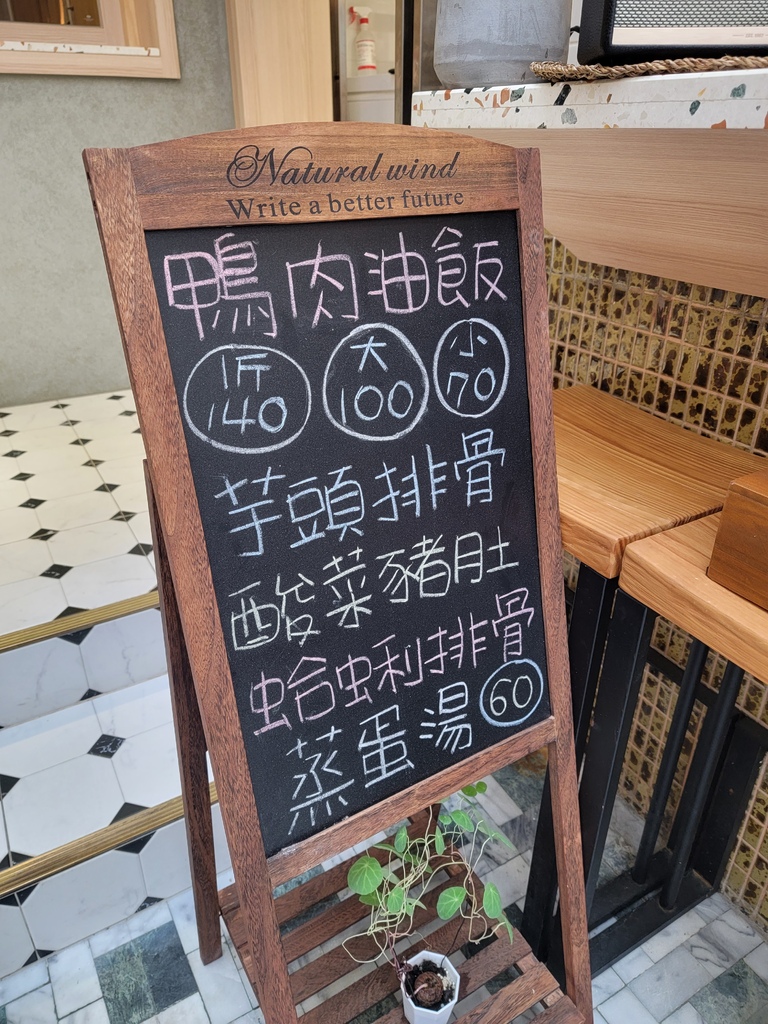 Natural wind
Write a better future
鴨肉油飯
斤 大 小
140 100 70
芋頭排骨
酸菜豬肚
蛤蜊排骨
蒸蛋湯 60